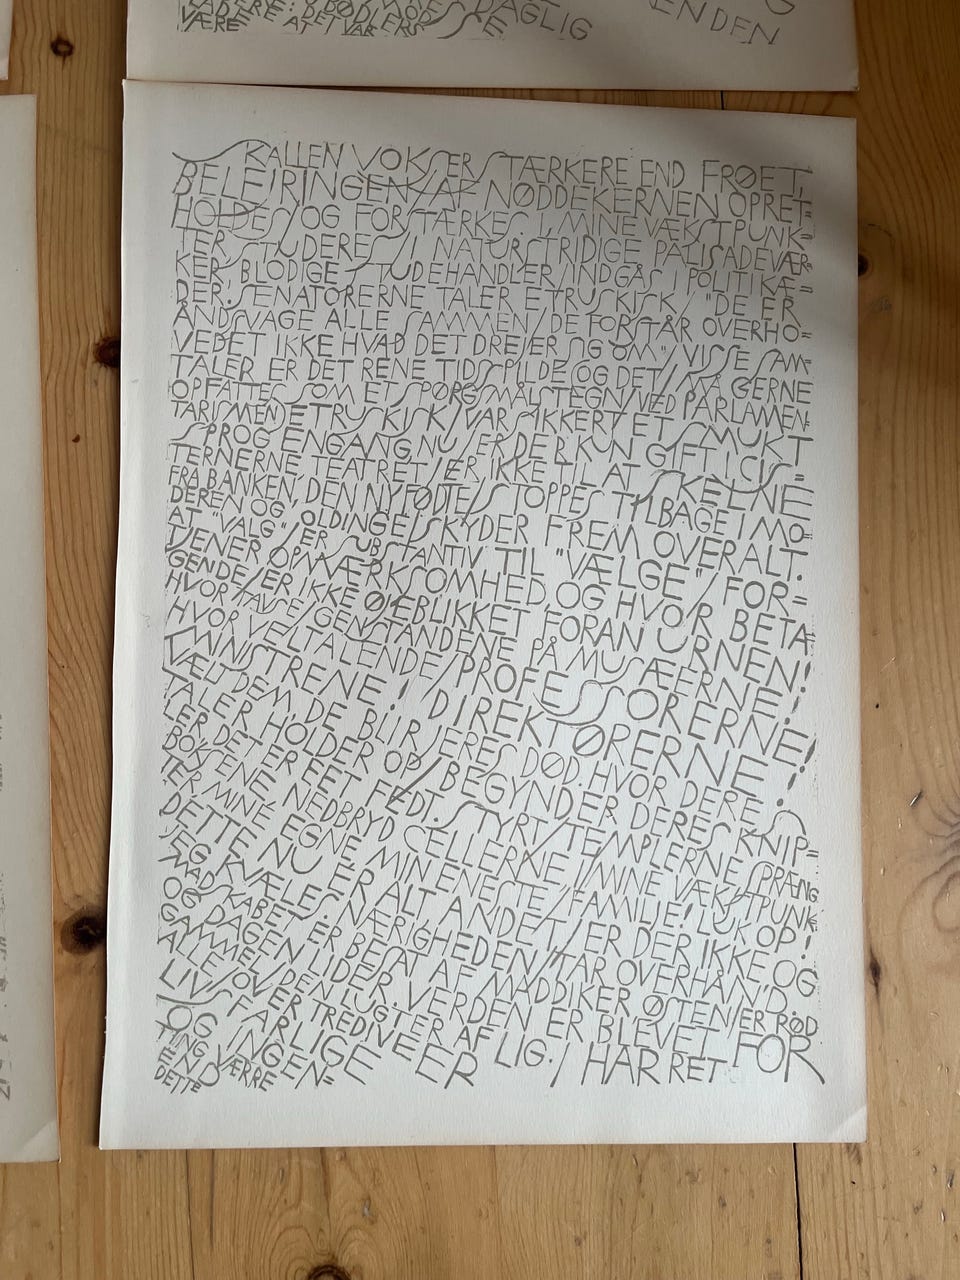 DAGLIG
ENDEN
VÆRE
SKALLEN VOKSER STÆRKERE END FRØET,
BELEJRINGEN AF NØDDEKERNEN OPRET=
HOLDES OG FORSTÆRKES I MINE VÆKSTPUNK=
TER STUDERES I NATURSTRIDIGE PALISADEVÆR=
KER BLODIGE STUDEHANDLER INDGÅS I POLITIKÆ=
DER. SENATORERNE TALER ETRUSKISK / "DE ER
ÅNDSVAGE ALLE SAMMEN / DE FORSTÅR OVERHO=
VEDET IKKE HVAD DET DREJER SIG OM" / VISSE SAM=
TALER ER DET RENE TIDSSPILDE OG DET / MÅ GERNE
OPFATTES SOM ET SPØRGSMÅLSTEGN VED PARLAMEN=
TARISMEN ETRUSKISK VAR SIKKERT ET SMUKT
SPROG ENGANG, NU ER DER KUN GIFT I CIS=
TERNERNE TEATRET / ER IKKE TIL AT SKELNE
FRA BANKEN, DEN NYFØDTE / STOPPES TILBAGE I MO=
DEREN OG OLDINGE / SKYDER FREM OVERALT.
AT "VALG" ER SUBSTANTIV TIL "VÆLGE" FOR=
TJENER OPMÆRKSOMHED. OG HVOR BETA=
GENDE / ER IKKE ØJEBLIKKET FORAN URNEN!
HVOR TAVSE / GENSTANDENE PÅ MUSÆERNE!
HVOR VELTALENDE / PROFESSORERNE!
MINISTRENE! DIREKTØRERNE!
VÆLT DEM, DE BLIR JERES DØD. HVOR DERE
TALER HOLDER OP / BEGYNDER DERES KNIP=
LER DET ER FET FEDT. STYRT / TEMPLERNE SPRÆNG
BOKSENE NEDBRYD CELLERNE I MINE VÆKSTPUNK=
TER MINE EGNE, MIN ENESTE / FAMILJE! LUK OP!
DETTE NU ER ALT, ANDET / ER DER IKKE OG
JEG KVÆLES. NÆRIGHEDEN / TAR OVERHÅND.
MADSKABET ER BESAT AF MADDIKER ØSTEN / ER RØD
OG DAGEN LIDER. VERDEN ER BLEVET FOR
GAMMEL / DEN LUGTER AF LIG. / HAR RET
ALLE / OVER TREDIVE ER
LIVSFARLIGE
OG INGEN=
TING VÆRRE
END
DETTE